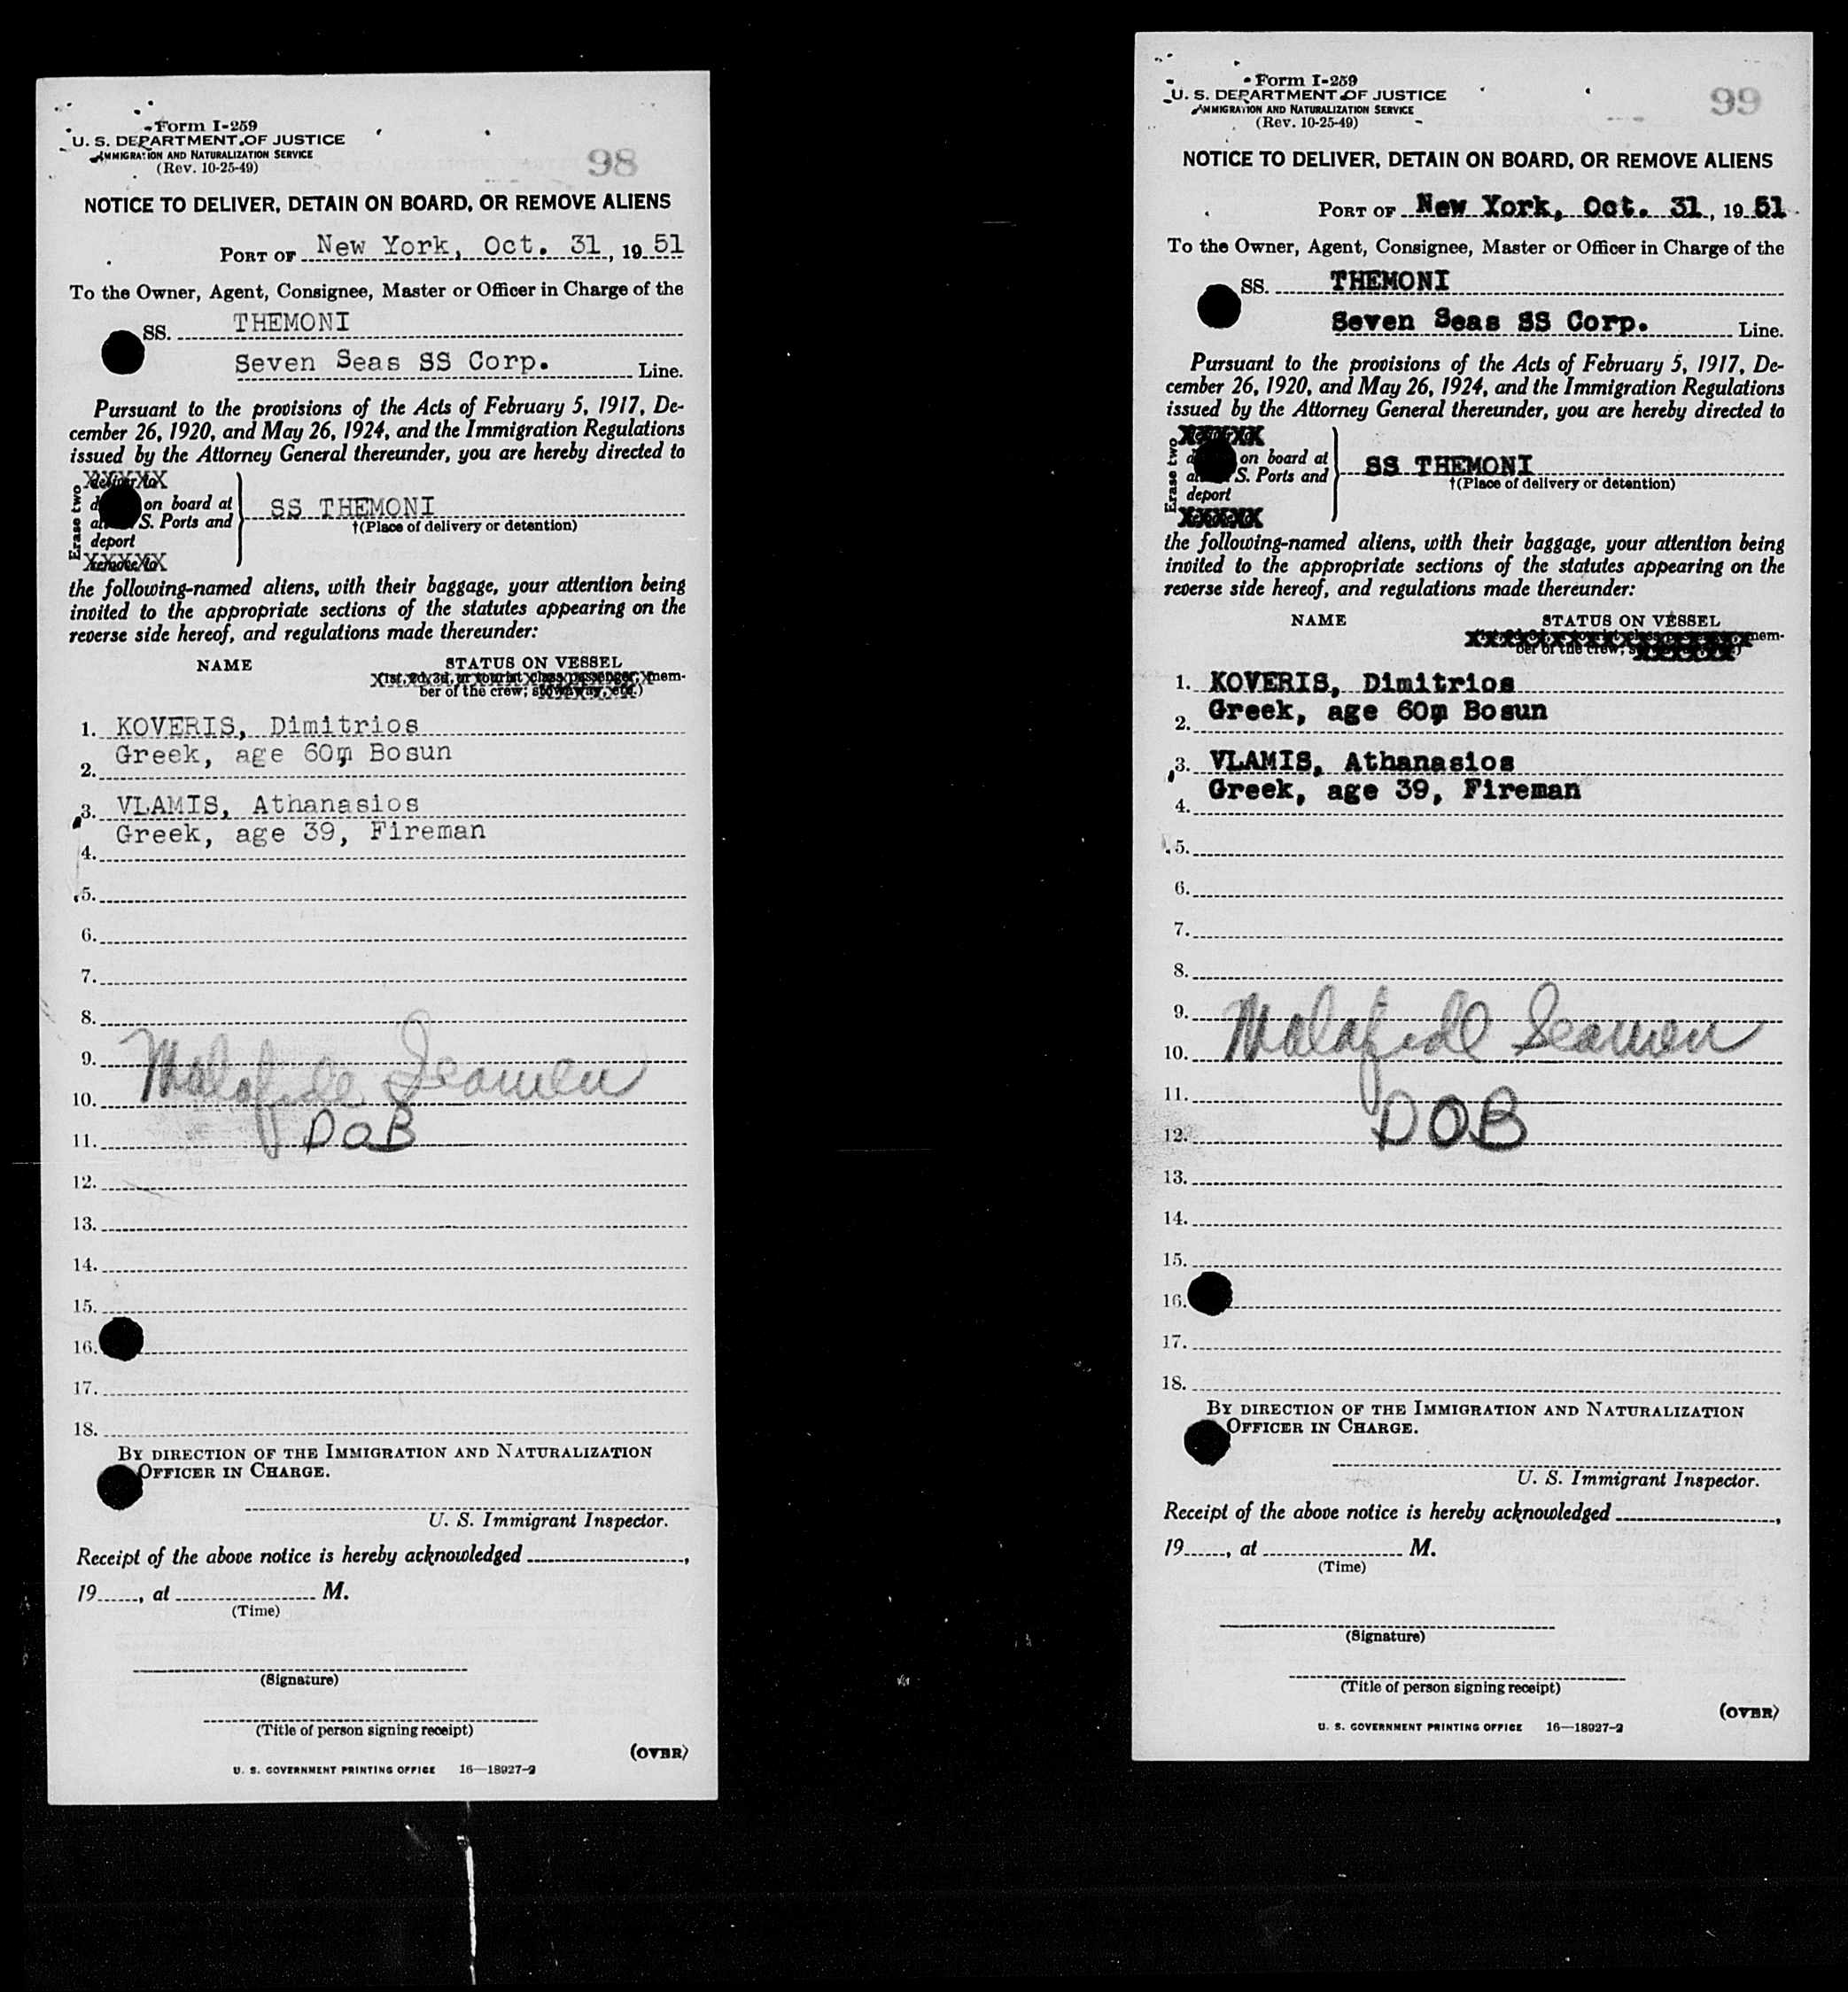 Form I-259
U. S. DEPARTMENT OF JUSTICE
IMMIGRATION AND NATURALIZATION SERVICE
(Rev. 10-25-49)
98
NOTICE TO DELIVER, DETAIN ON BOARD, OR REMOVE ALIENS
PORT OF New York, Oct. 31, 19 51
To the Owner, Agent, Consignee, Master or Officer in Charge of the
SS. THEMONI
Seven Seas SS Corp. Line.
Pursuant to the provisions of the Acts of February 5, 1917, De-
cember 26, 1920, and May 26, 1924, and the Immigration Regulations
issued by the Attorney General thereunder, you are hereby directed to
Erase two
deliver to
on board at
S. Ports and
deport
remove to
SS THEMONI
†(Place of delivery or detention)
the following-named aliens, with their baggage, your attention being
invited to the appropriate sections of the statutes appearing on the
reverse side hereof, and regulations made thereunder:
NAME STATUS ON VESSEL
(1st, 2d, 3d, or tourist class passenger; mem-
ber of the crew; stowaway, etc.)
1. KOVERIS, Dimitrios
Greek, age 60m Bosun
2.
3. VLAMIS, Athanasios
Greek, age 39, Fireman
4.
5.
6.
7.
8.
9. Malafide Seamen
10.
11. DOB
12.
13.
14.
15.
16.
17.
18.
BY DIRECTION OF THE IMMIGRATION AND NATURALIZATION
OFFICER IN CHARGE.
U. S. Immigrant Inspector.
Receipt of the above notice is hereby acknowledged ,
19 , at M.
(Time)
(Signature)
(Title of person signing receipt)
(OVER)
U. S. GOVERNMENT PRINTING OFFICE 16—18927-2
Form I-259
U. S. DEPARTMENT OF JUSTICE
IMMIGRATION AND NATURALIZATION SERVICE
(Rev. 10-25-49)
99
NOTICE TO DELIVER, DETAIN ON BOARD, OR REMOVE ALIENS
PORT OF New York, Oct. 31, 19 51
To the Owner, Agent, Consignee, Master or Officer in Charge of the
SS. THEMONI
Seven Seas SS Corp. Line.
Pursuant to the provisions of the Acts of February 5, 1917, De-
cember 26, 1920, and May 26, 1924, and the Immigration Regulations
issued by the Attorney General thereunder, you are hereby directed to
Erase two
on board at
S. Ports and
deport
SS THEMONI
†(Place of delivery or detention)
the following-named aliens, with their baggage, your attention being
invited to the appropriate sections of the statutes appearing on the
reverse side hereof, and regulations made thereunder:
NAME STATUS ON VESSEL
(1st, 2d, 3d, or tourist class passenger; mem-
ber of the crew;
1. KOVERIS, Dimitrios
Greek, age 60m Bosun
2.
3. VLAMIS, Athanasios
Greek, age 39, Fireman
4.
5.
6.
7.
8.
9. Malafide Seamen
10.
11. DOB
12.
13.
14.
15.
16.
17.
18.
BY DIRECTION OF THE IMMIGRATION AND NATURALIZATION
OFFICER IN CHARGE.
U. S. Immigrant Inspector.
Receipt of the above notice is hereby acknowledged ,
19 , at M.
(Time)
(Signature)
(Title of person signing receipt)
(OVER)
U. S. GOVERNMENT PRINTING OFFICE 16—18927-2